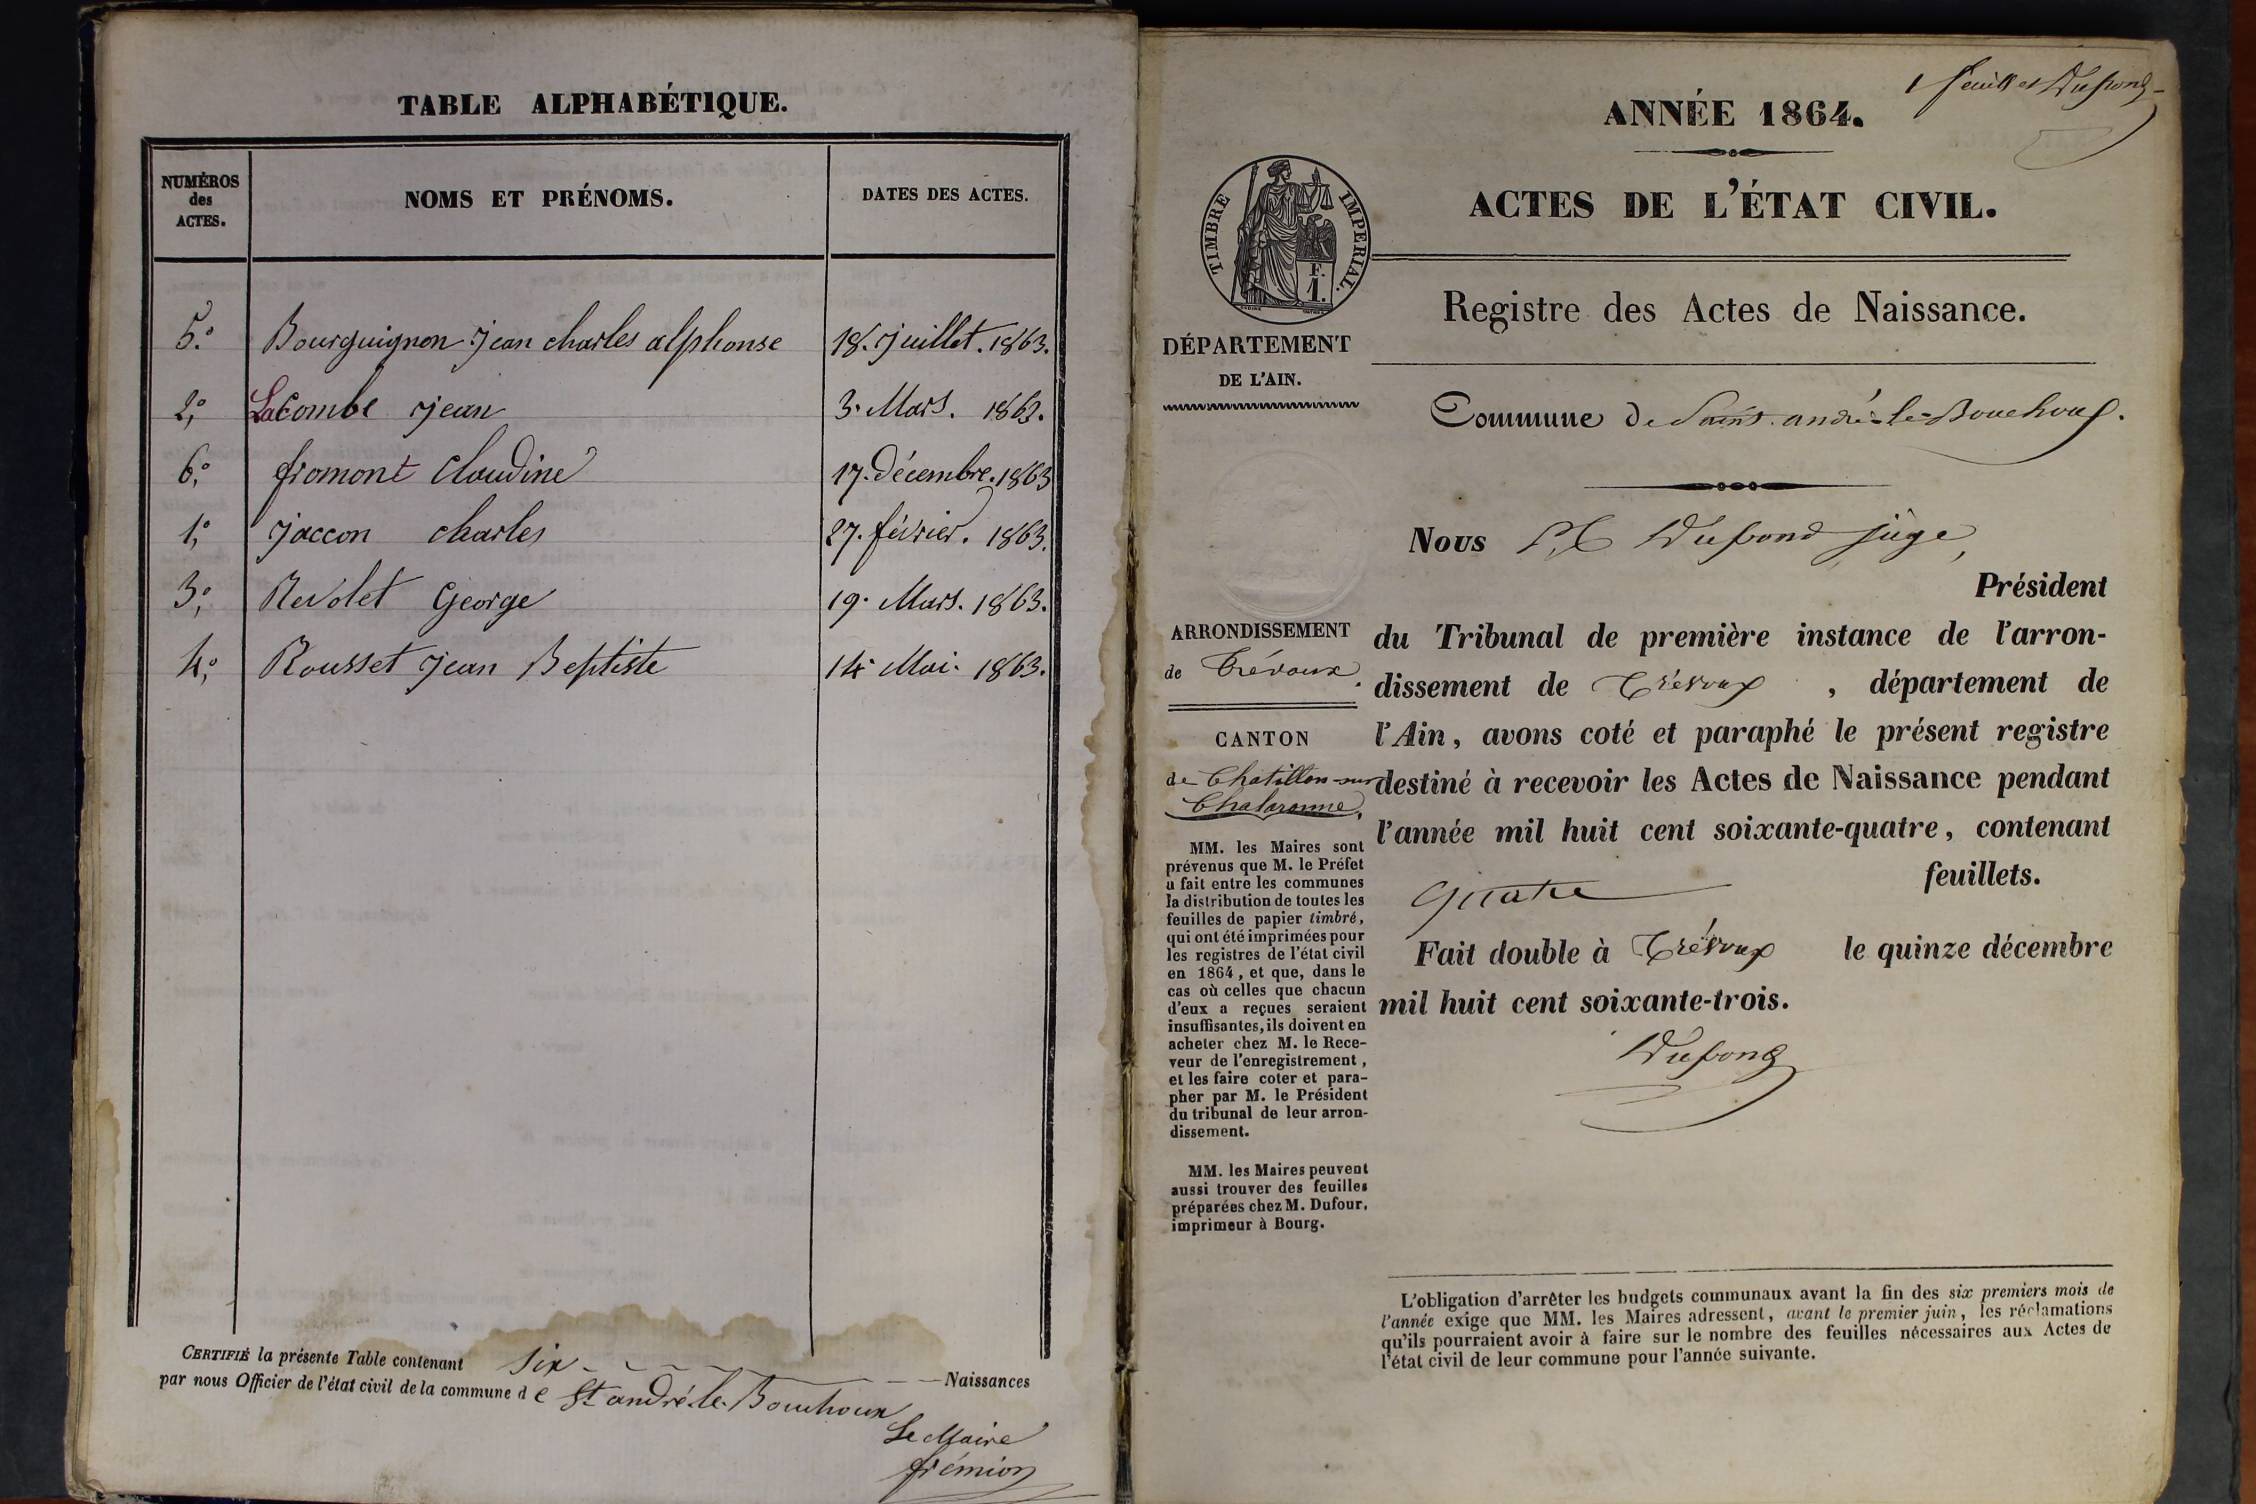 TABLE ALPHABÉTIQUE.
NUMÉROS des ACTES.
NOMS ET PRÉNOMS.
DATES DES ACTES.
5.° Bourguignon Jean charles alphonse 18. Juillet. 1863.
2,° LaCombe Jean 3. Mars. 1863.
6,° fromont Claudine 17. Décembre. 1863
1,° Jaccon charles 27. février. 1863.
3,° Revolet George 19. Mars. 1863.
4,° Rousset Jean Beptiste 14. Mai. 1863.
CERTIFIÉ la présente Table contenant Six Naissances
par nous Officier de l'état civil de la commune de St andré-le-Bouchoux
Le Maire
frémion
1 feuillet Dupond
ANNÉE 1864.
ACTES DE L'ÉTAT CIVIL.
TIMBRE IMPERIAL.
F.
1.
Registre des Actes de Naissance.
DÉPARTEMENT
DE L'AIN.
Commune de Saint-andré-le-Bouchoux.
Nous Dupond juge,
Président
du Tribunal de première instance de l'arron-
dissement de Trévoux, département de
l'Ain, avons coté et paraphé le présent registre
destiné à recevoir les Actes de Naissance pendant
l'année mil huit cent soixante-quatre, contenant
quatre feuillets.
Fait double à Trévoux le quinze décembre
mil huit cent soixante-trois.
Dupond
ARRONDISSEMENT
de Trévoux.
CANTON
de Chatillon-sur
Chalaronne,
MM. les Maires sont
prévenus que M. le Préfet
a fait entre les communes
la distribution de toutes les
feuilles de papier timbré,
qui ont été imprimées pour
les registres de l'état civil
en 1864, et que, dans le
cas où celles que chacun
d'eux a reçues seraient
insuffisantes, ils doivent en
acheter chez M. le Rece-
veur de l'enregistrement,
et les faire coter et para-
pher par M. le Président
du tribunal de leur arron-
dissement.
MM. les Maires peuvent
aussi trouver des feuilles
préparées chez M. Dufour,
imprimeur à Bourg.
L'obligation d'arrêter les budgets communaux avant la fin des six premiers mois de
l'année exige que MM. les Maires adressent, avant le premier juin, les réclamations
qu'ils pourraient avoir à faire sur le nombre des feuilles nécessaires aux Actes de
l'état civil de leur commune pour l'année suivante.